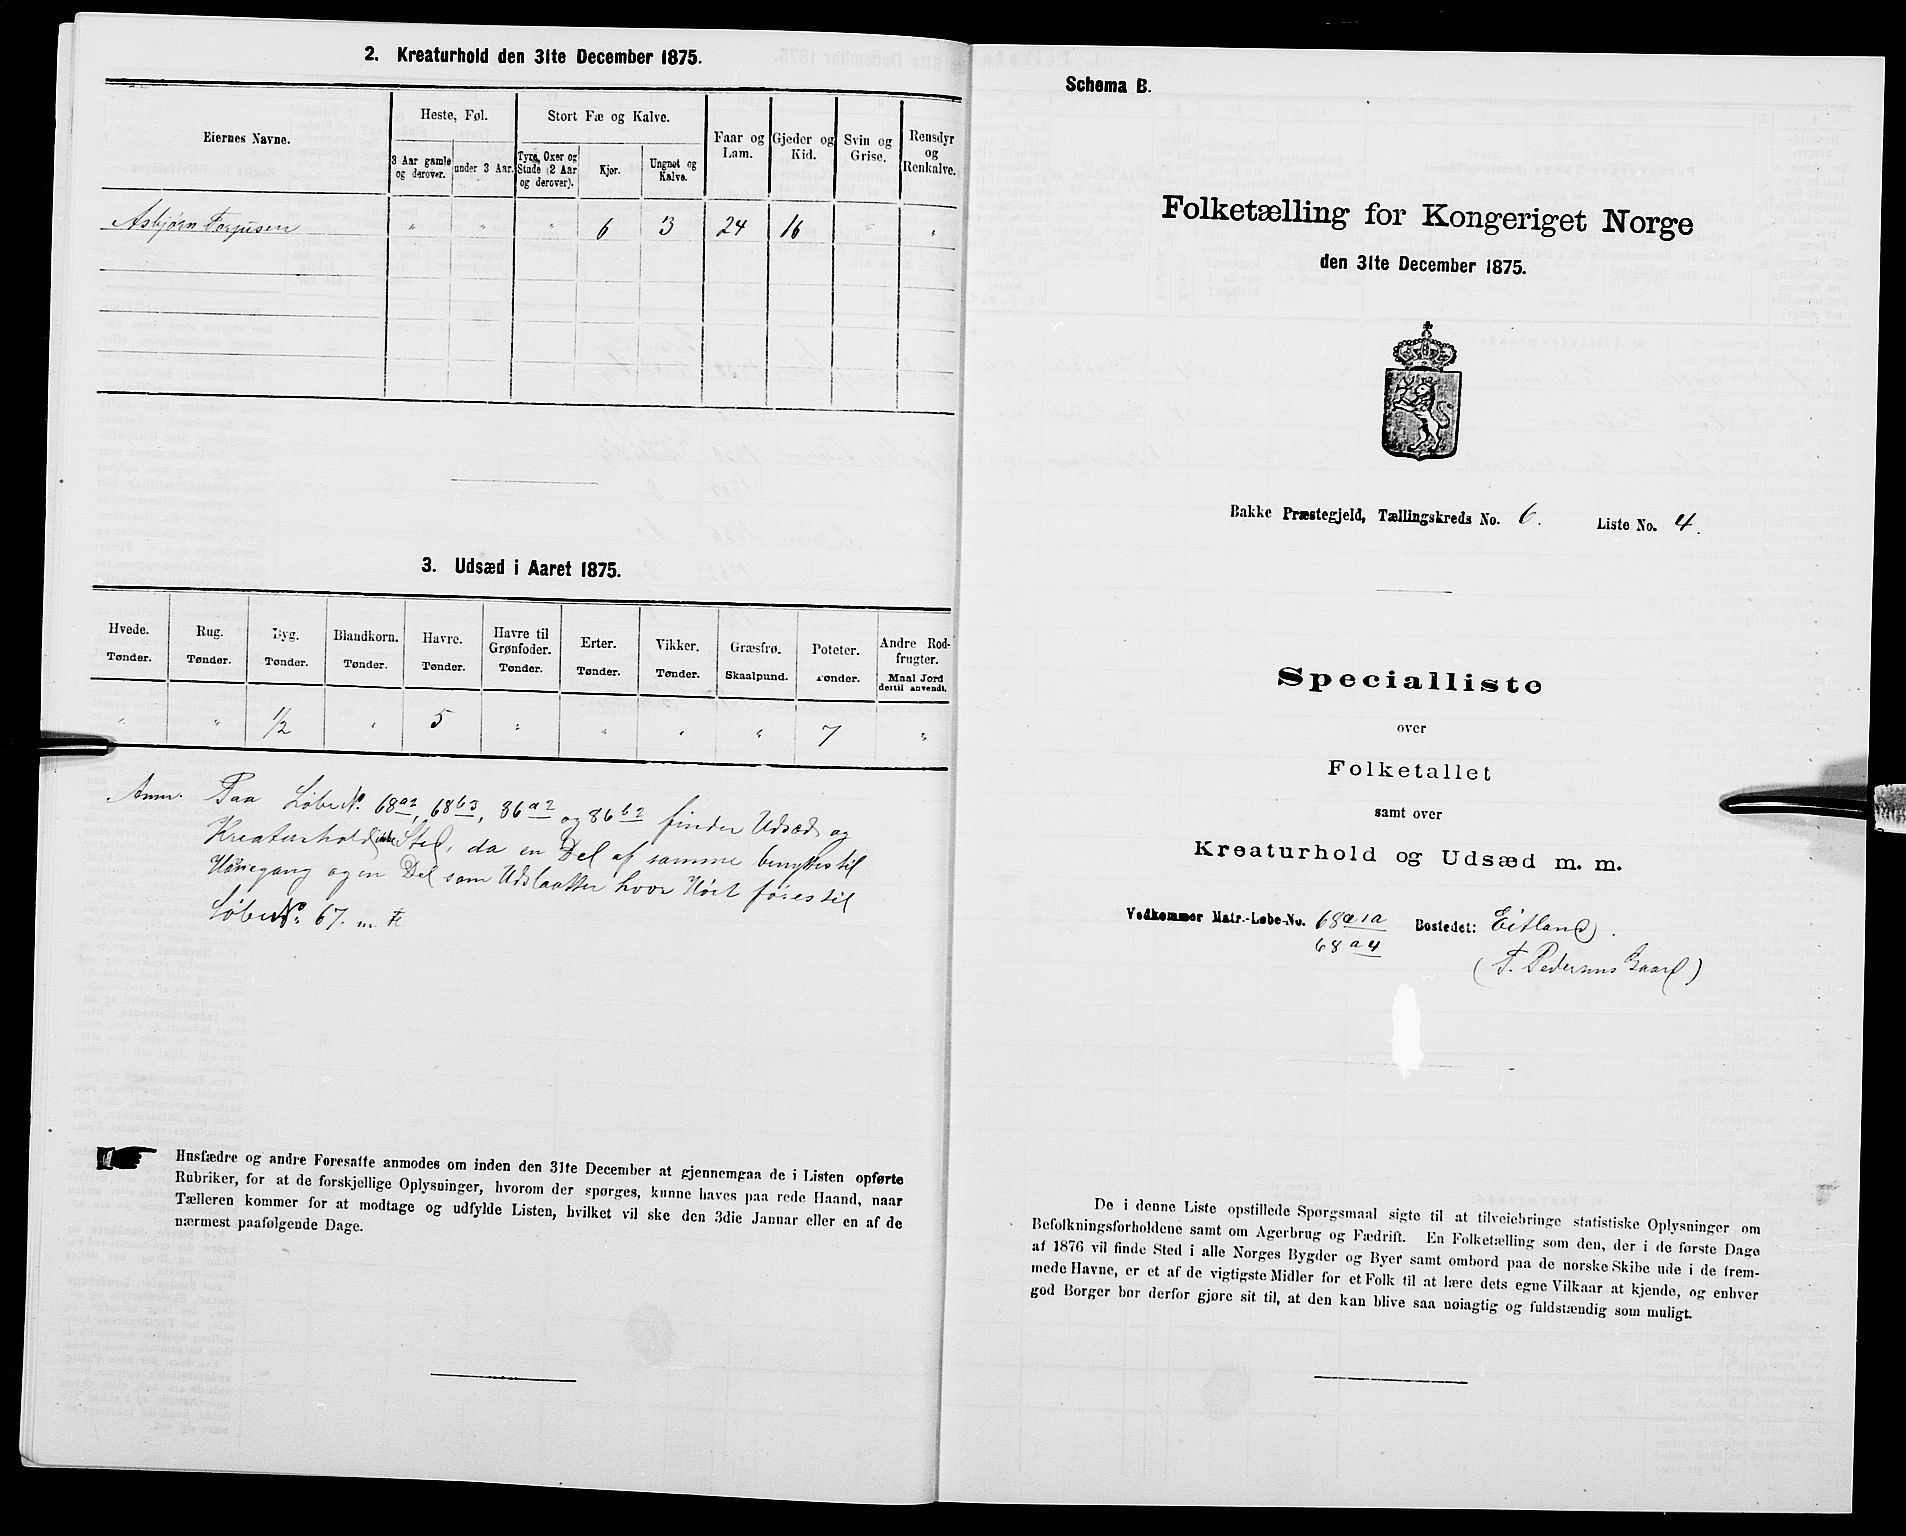 2. Kreaturhold den 31te December 1875.
Eiernes Navne.
Heste, Føl.
Stort Fæ og Kalve.
Faar og Lam.
Gjeder og Kid.
Svin og Grise.
Rensdyr og Renkalve.
3 Aar gamle og derover.
under 3 Aar.
Tyre, Oxer og Stude (2 Aar og derover).
Kjør.
Ungnøt og Kalve.
Asbjørn Terjusen " " " 6 3 24 16 " "
3. Udsæd i Aaret 1875.
Hvede. Rug. Byg. Blandkorn. Havre. Havre til Grønfoder. Erter. Vikker. Græsfrø. Poteter. Andre Rodfrugter.
Tønder. Tønder. Tønder. Tønder. Tønder. Tønder. Tønder. Tønder. Skaalpund. Tønder. Maal Jord dertil anvendt.
" " 1/2 " 5 " " " " 7 "
Anm. Paa Løbe No. 68 a2, 68 b3, 86 a2 og 86 b2 finder Udsæd og
Kreaturhold ikke Sted, da en Del af samme benyttes til
Havnegang og en Del som Udslaatter hvor Höet föres til
Løbe No. 67.
Husfædre og andre Foresatte anmodes om inden den 31te December at gjennemgaa de i Listen opførte
Rubriker, for at de forskjellige Oplysninger, hvorom der spørges, kunne haves paa rede Haand, naar
Tælleren kommer for at modtage og udfylde Listen, hvilket vil ske den 3die Januar eller en af de
nærmest paafølgende Dage.
Schema B.
Folketælling for Kongeriget Norge
den 31te December 1875.
Bakke Præstegjeld, Tællingskreds No. 6. Liste No. 4.
Specialliste
over
Folketallet
samt over
Kreaturhold og Udsæd m. m.
Vedkommer Matr.-Løbe-No. 68 a1a Bostedet: Eitland.
68 a4 (T. Pedersens Gaard)
De i denne Liste opstillede Spørgsmaal sigte til at tilveiebringe statistiske Oplysninger om
Befolkningsforholdene samt om Agerbrug og Fædrift. En Folketælling som den, der i de første Dage
af 1876 vil finde Sted i alle Norges Bygder og Byer samt ombord paa de norske Skibe ude i de frem-
mede Havne, er et af de vigtigste Midler for et Folk til at lære dets egne Vilkaar at kjende, og enhver
god Borger bør derfor gjøre sit til, at den kan blive saa nøiagtig og fuldstændig som muligt.